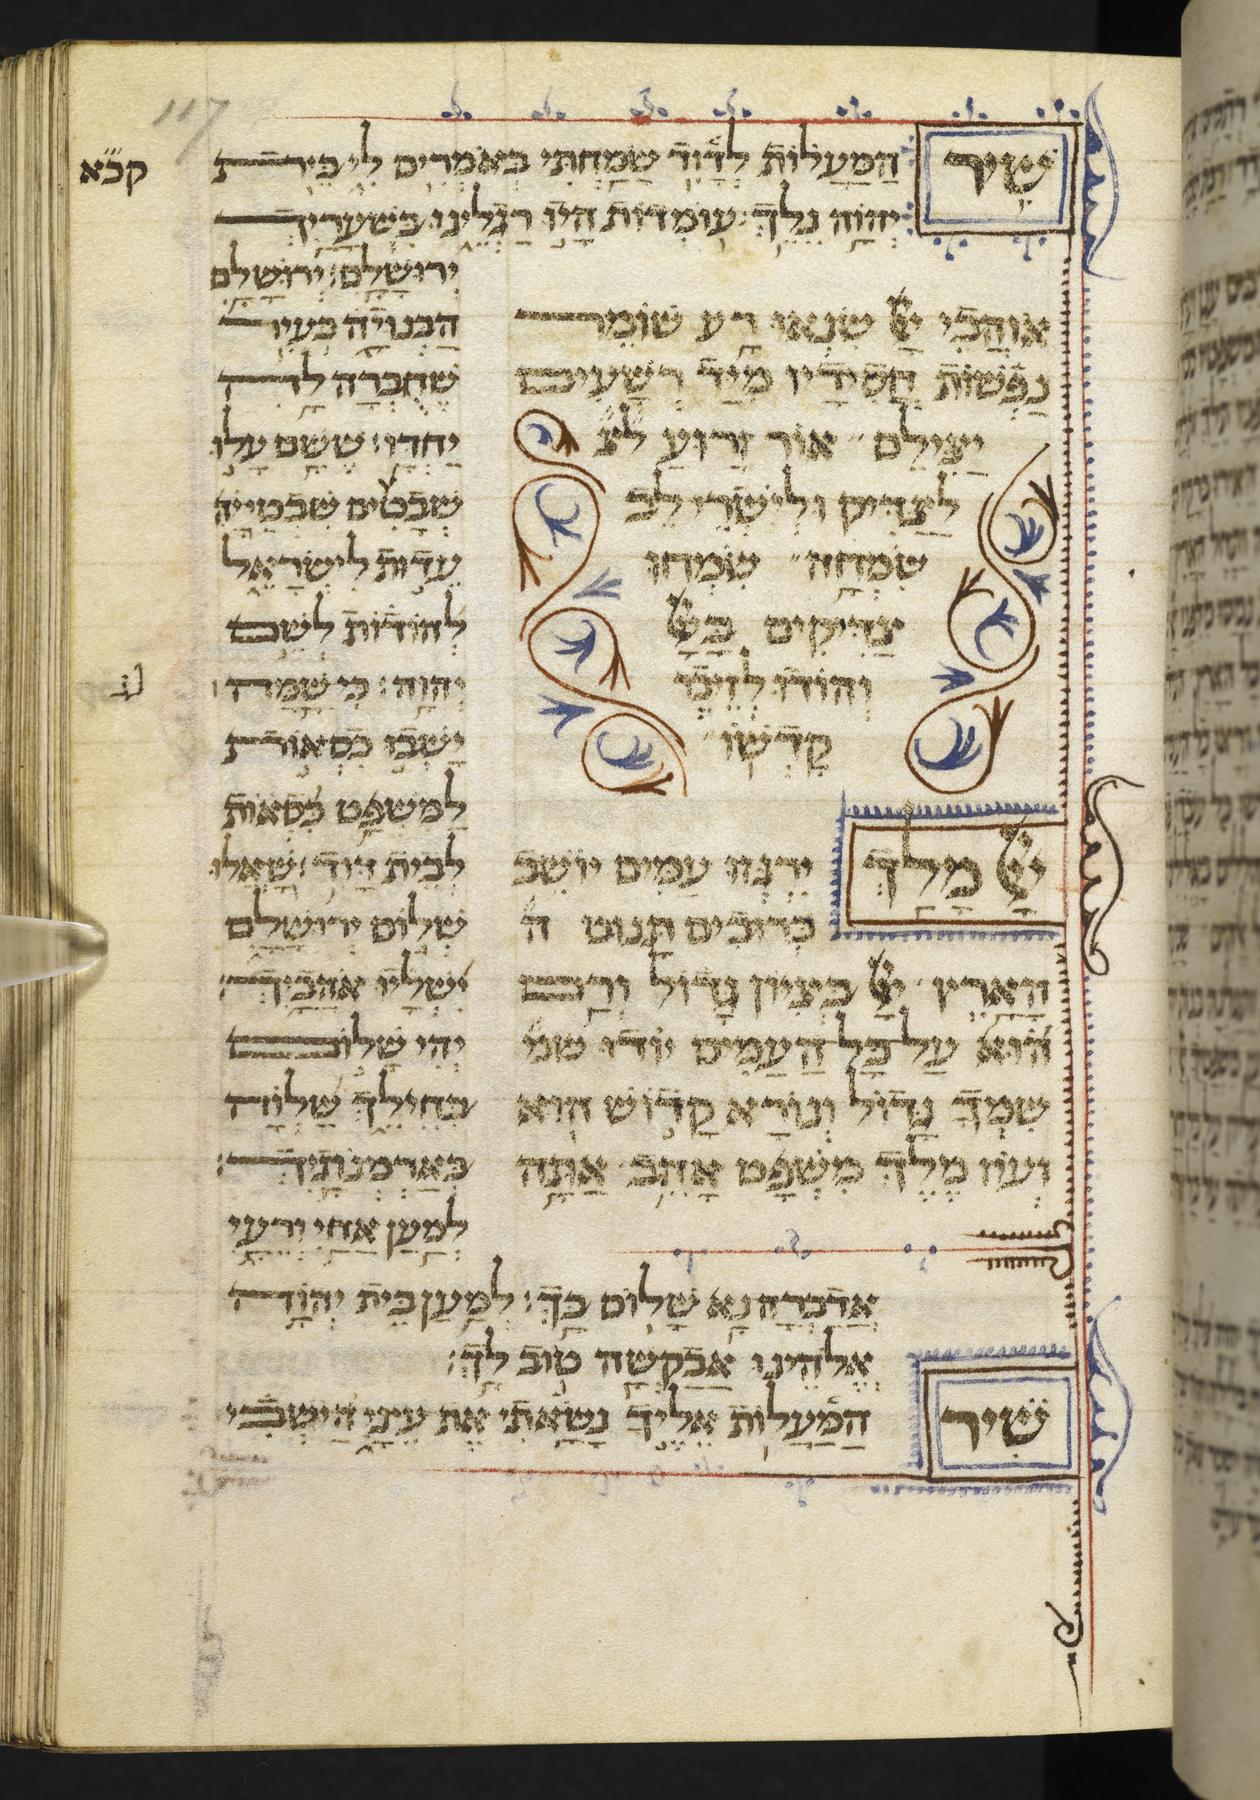 117
קכ״א
שיר
המעלות לדוד שמחתי באומרים לי בית
יהוה נלך: עומדות היו רגלינו בשעריך
ירושלם: ירושלם
הבנויה כעיר
שחברה לה
יחדו: ששם עלו
שבטים שבטי יה
עדות לישראל
להודות לשם
יהוה: כי שמה
ישבו כסאות
למשפט כסאות
לבית דוד: שאלו
שלום ירושלם
ישליו אהביך:
יהי שלום
בחילך שלוה
בארמנותיך:
למען אחי ורעי
אדברה נא שלום בך: למען בית יהוה
אלהינו אבקשה טוב לך:
שיר
המעלות אליך נשאתי את עיני הישבי
אוהבי יי שנאו רע שומר
נפשות חסידיו מיד רשעים
יצילם אור זרוע לצ
לצדיק ולישרי לב
שמחה שמחו
צדיקים ביי
והודו לזכר
קדשו
יי מלך
ירגזו עמים יושב
כרובים תנוט ה
הארץ יי בציון גדול ורם
הוא על כל העמים יודו שמ
שמך גדול ונורא קדוש הוא
ועוז מלך משפט אהב אתה